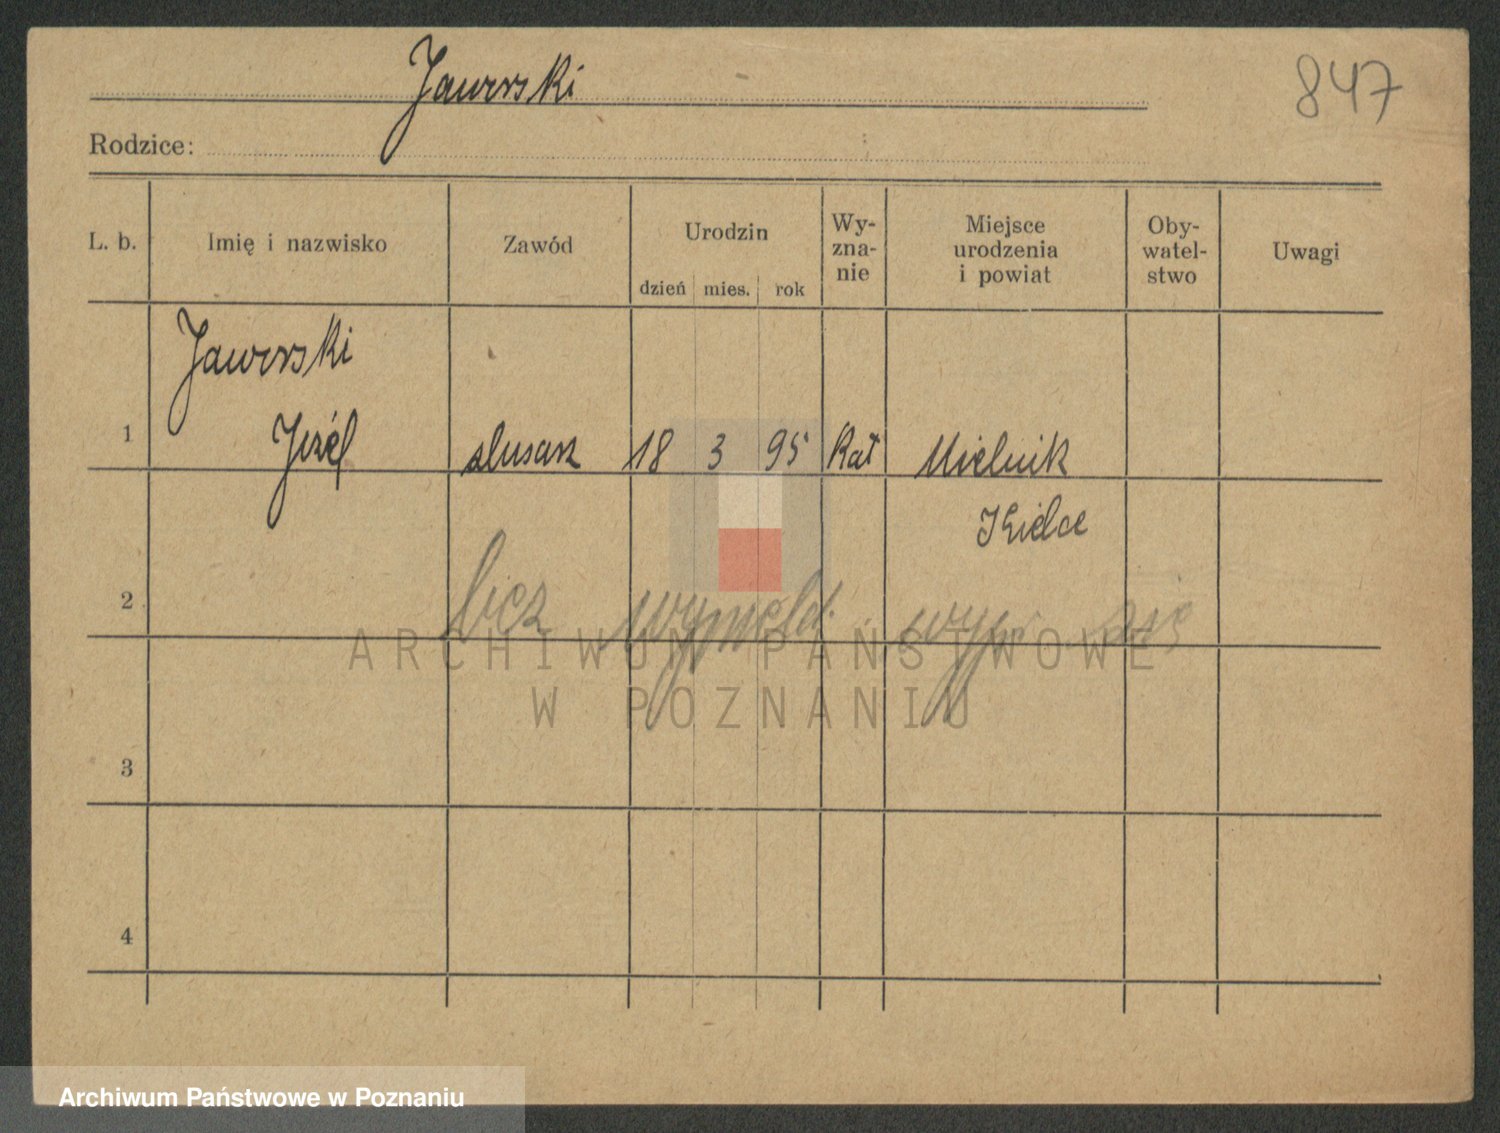 Jaworski
847
Rodzice:
L. b. Imię i nazwisko Zawód Urodzin dzień mies. rok Wy-zna-nie Miejsce urodzenia i powiat Oby-watel-stwo Uwagi
Jaworski
1 Józef slusarz 18 3 95 Kat Mielnik
Kielce
2 bez wymeld. wypr. się
ARCHIWUM PAŃSTWOWE
W POZNANIU
3
4
Archiwum Państwowe w Poznaniu